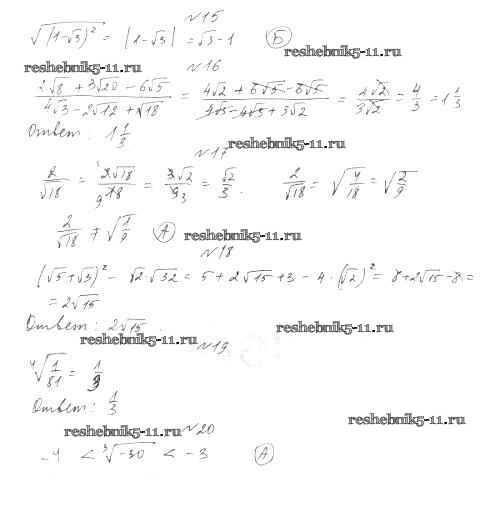 №15
√(1-√3)² = |1-√3| = √3-1 Б
reshebnik5-11.ru
reshebnik5-11.ru
№16
(2√8 + 3√20 - 6√5)/(4√3 - 2√12 + √18) = (4√2 + 6√5 - 6√5)/(4√3 - 4√3 + 3√2) = 4√2/3√2 = 4/3 = 1 1/3
Ответ: 1 1/3
reshebnik5-11.ru
№17
2/√18 = 2√18/18 = 3√2/9 = √2/3. 2/√18 = √4/18 = √2/9
2/√18 ≠ √1/9 А
reshebnik5-11.ru
№18
(√5+√3)² - √2·√32 = 5 + 2√15 + 3 - 4·(√2)² = 8+2√15-8 =
= 2√15
Ответ: 2√15.
reshebnik5-11.ru
reshebnik5-11.ru
№19
⁴√1/81 = 1/3
Ответ: 1/3
reshebnik5-11.ru
reshebnik5-11.ru
№20
-4 < ³√-30 < -3 А